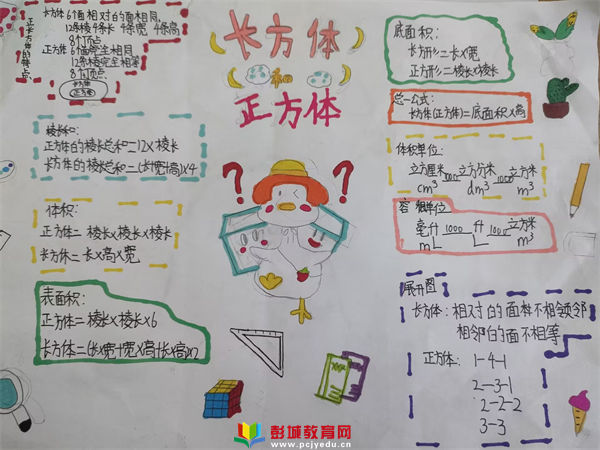 长方体
和
正方体
正长方体的特点
长方体6个面相对的面相同
12条棱4条长 4条宽 4条高
8个顶点
正方体6个面完全相同
12条棱完全相等
8个顶点
长方体
正方体
棱长和:
正方体的棱长总和=12×棱长
长方体的棱长总和=(长+宽+高)×4
体积:
正方体=棱长×棱长×棱长
长方体=长×高×宽
表面积:
正方体=棱长×棱长×6
长方体=(长×宽+宽×高+长×高)×2
底面积:
长方形=长×宽
正方形=棱长×棱长
总一公式:
长方体(正方体)=底面积×高
体积单位:
立方厘米 1000 立方分米 1000 立方米
cm³ dm³ m³
容积单位
毫升 1000 升 1000 立方米
ml L m³
展开图
长方体:相对的面样不相领邻
相邻的面不相等
正方体: 1-4-1
2-3-1
2-2-2
3-3
? ?
彭城教育网
www.pcjyedu.cn